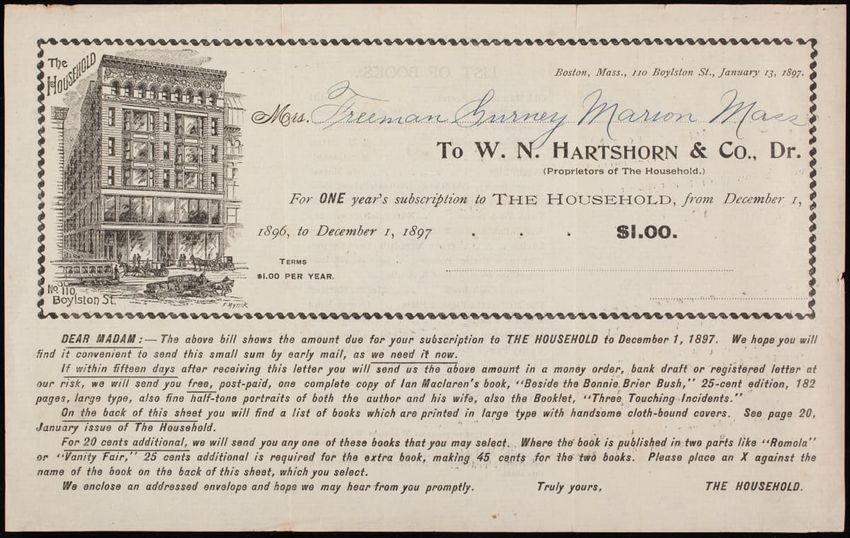 The
HOUSEHOLD
Boston, Mass., 110 Boylston St., January 13, 1897.
Mrs. Freeman Gurney Marion Mass
To W. N. HARTSHORN & CO., Dr.
(Proprietors of The Household.)
For ONE year's subscription to THE HOUSEHOLD, from December 1,
1896, to December 1, 1897 . . . $1.00.
TERMS
$1.00 PER YEAR.
No. 110
Boylston St.
DEAR MADAM:—The above bill shows the amount due for your subscription to THE HOUSEHOLD to December 1, 1897. We hope you will
find it convenient to send this small sum by early mail, as we need it now.
If within fifteen days after receiving this letter you will send us the above amount in a money order, bank draft or registered letter at
our risk, we will send you free, post-paid, one complete copy of Ian Maclaren's book, "Beside the Bonnie Brier Bush," 25-cent edition, 182
pages, large type, also fine half-tone portraits of both the author and his wife, also the Booklet, "Three Touching Incidents."
On the back of this sheet you will find a list of books which are printed in large type with handsome cloth-bound covers. See page 20,
January issue of The Household.
For 20 cents additional, we will send you any one of these books that you may select. Where the book is published in two parts like "Romola"
or "Vanity Fair," 25 cents additional is required for the extra book, making 45 cents for the two books. Please place an X against the
name of the book on the back of this sheet, which you select.
We enclose an addressed envelope and hope we may hear from you promptly. Truly yours, THE HOUSEHOLD.